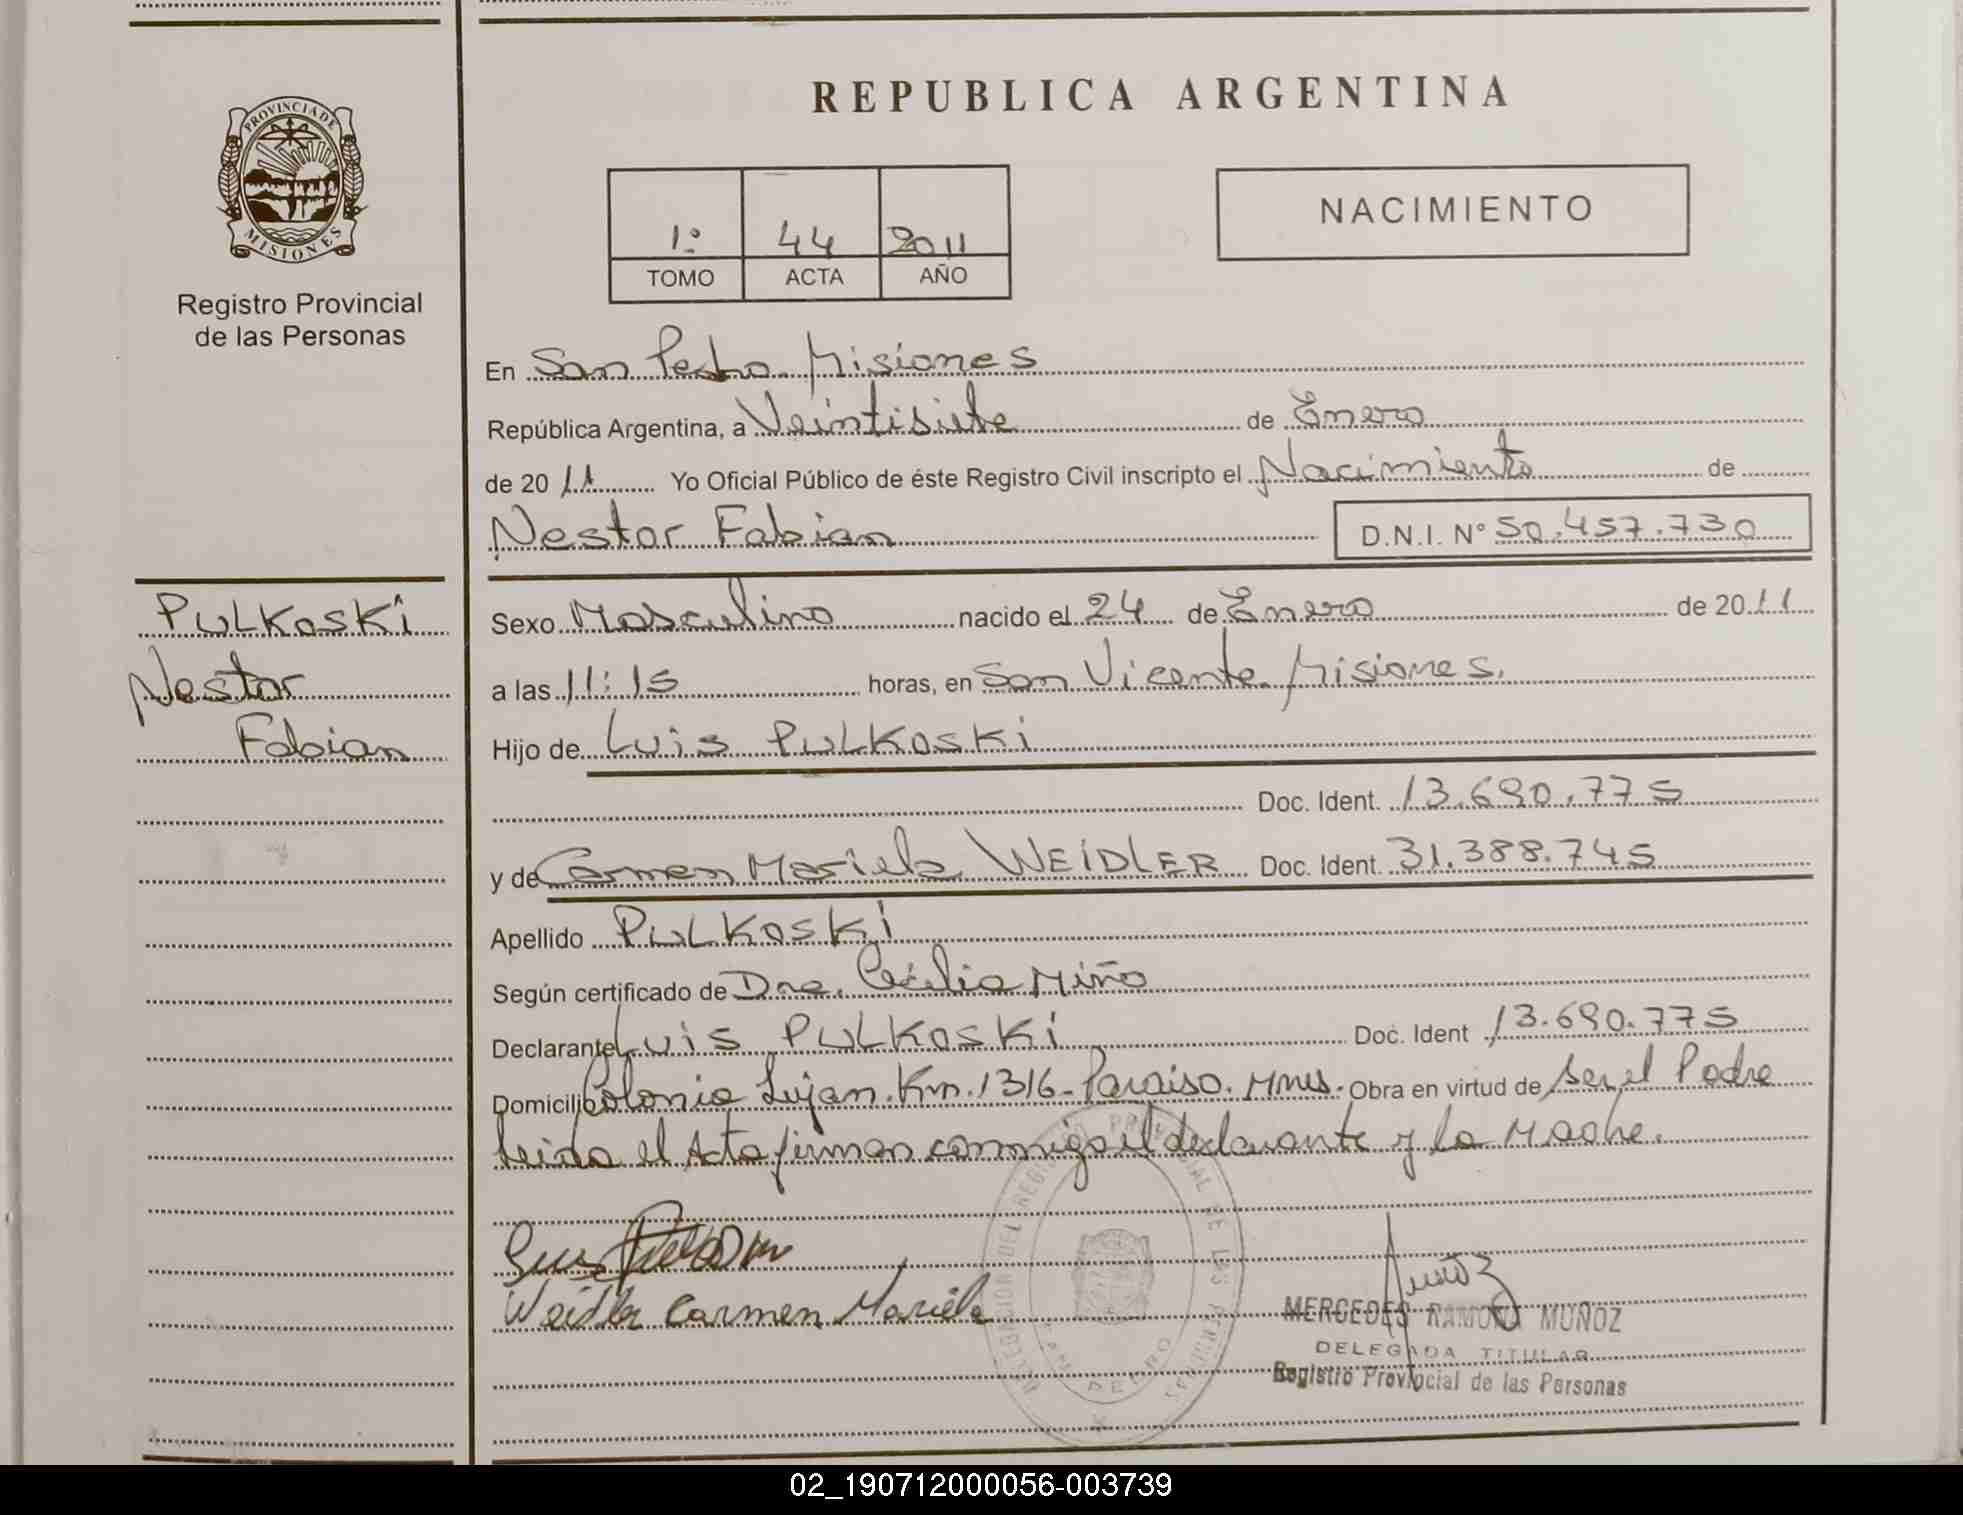 REPUBLICA ARGENTINA
PROVINCIA DE
MISIONES
Registro Provincial
de las Personas
1º 44 2011
TOMO ACTA AÑO
NACIMIENTO
En San Pedro. Misiones
República Argentina, a Veintisiete de Enero
de 2011 Yo Oficial Público de éste Registro Civil inscripto el Nacimiento de
Nestor Fabian D.N.I. Nº 50.457.730
PULKOSKI
Nestor
Fabian
Sexo Masculino nacido el 24 de Enero de 2011
a las 11:15 horas, en San Vicente. Misiones.
Hijo de Luis PULKOSKI
Doc. Ident. 13.690.775
y de Carmen Mariela WEIDLER Doc. Ident. 31.388.745
Apellido PULKOSKI
Según certificado de Dra. Cecilia Miño
Declarante Luis PULKOSKI Doc. Ident 13.690.775
Domicilio Colonia Lujan. Km. 1316-Paraiso. Mnes. Obra en virtud de ser el Padre
leida el Acta firman conmigo el declarante y la Madre.
Luis
Weidler Carmen Mariela
DELEGACION DEL REGISTRO PROVINCIAL DE LAS PERSONAS
SAN PEDRO
Muñoz
MERCEDES RAMONA MUÑOZ
DELEGADA TITULAR
Registro Provincial de las Personas
02_190712000056-003739